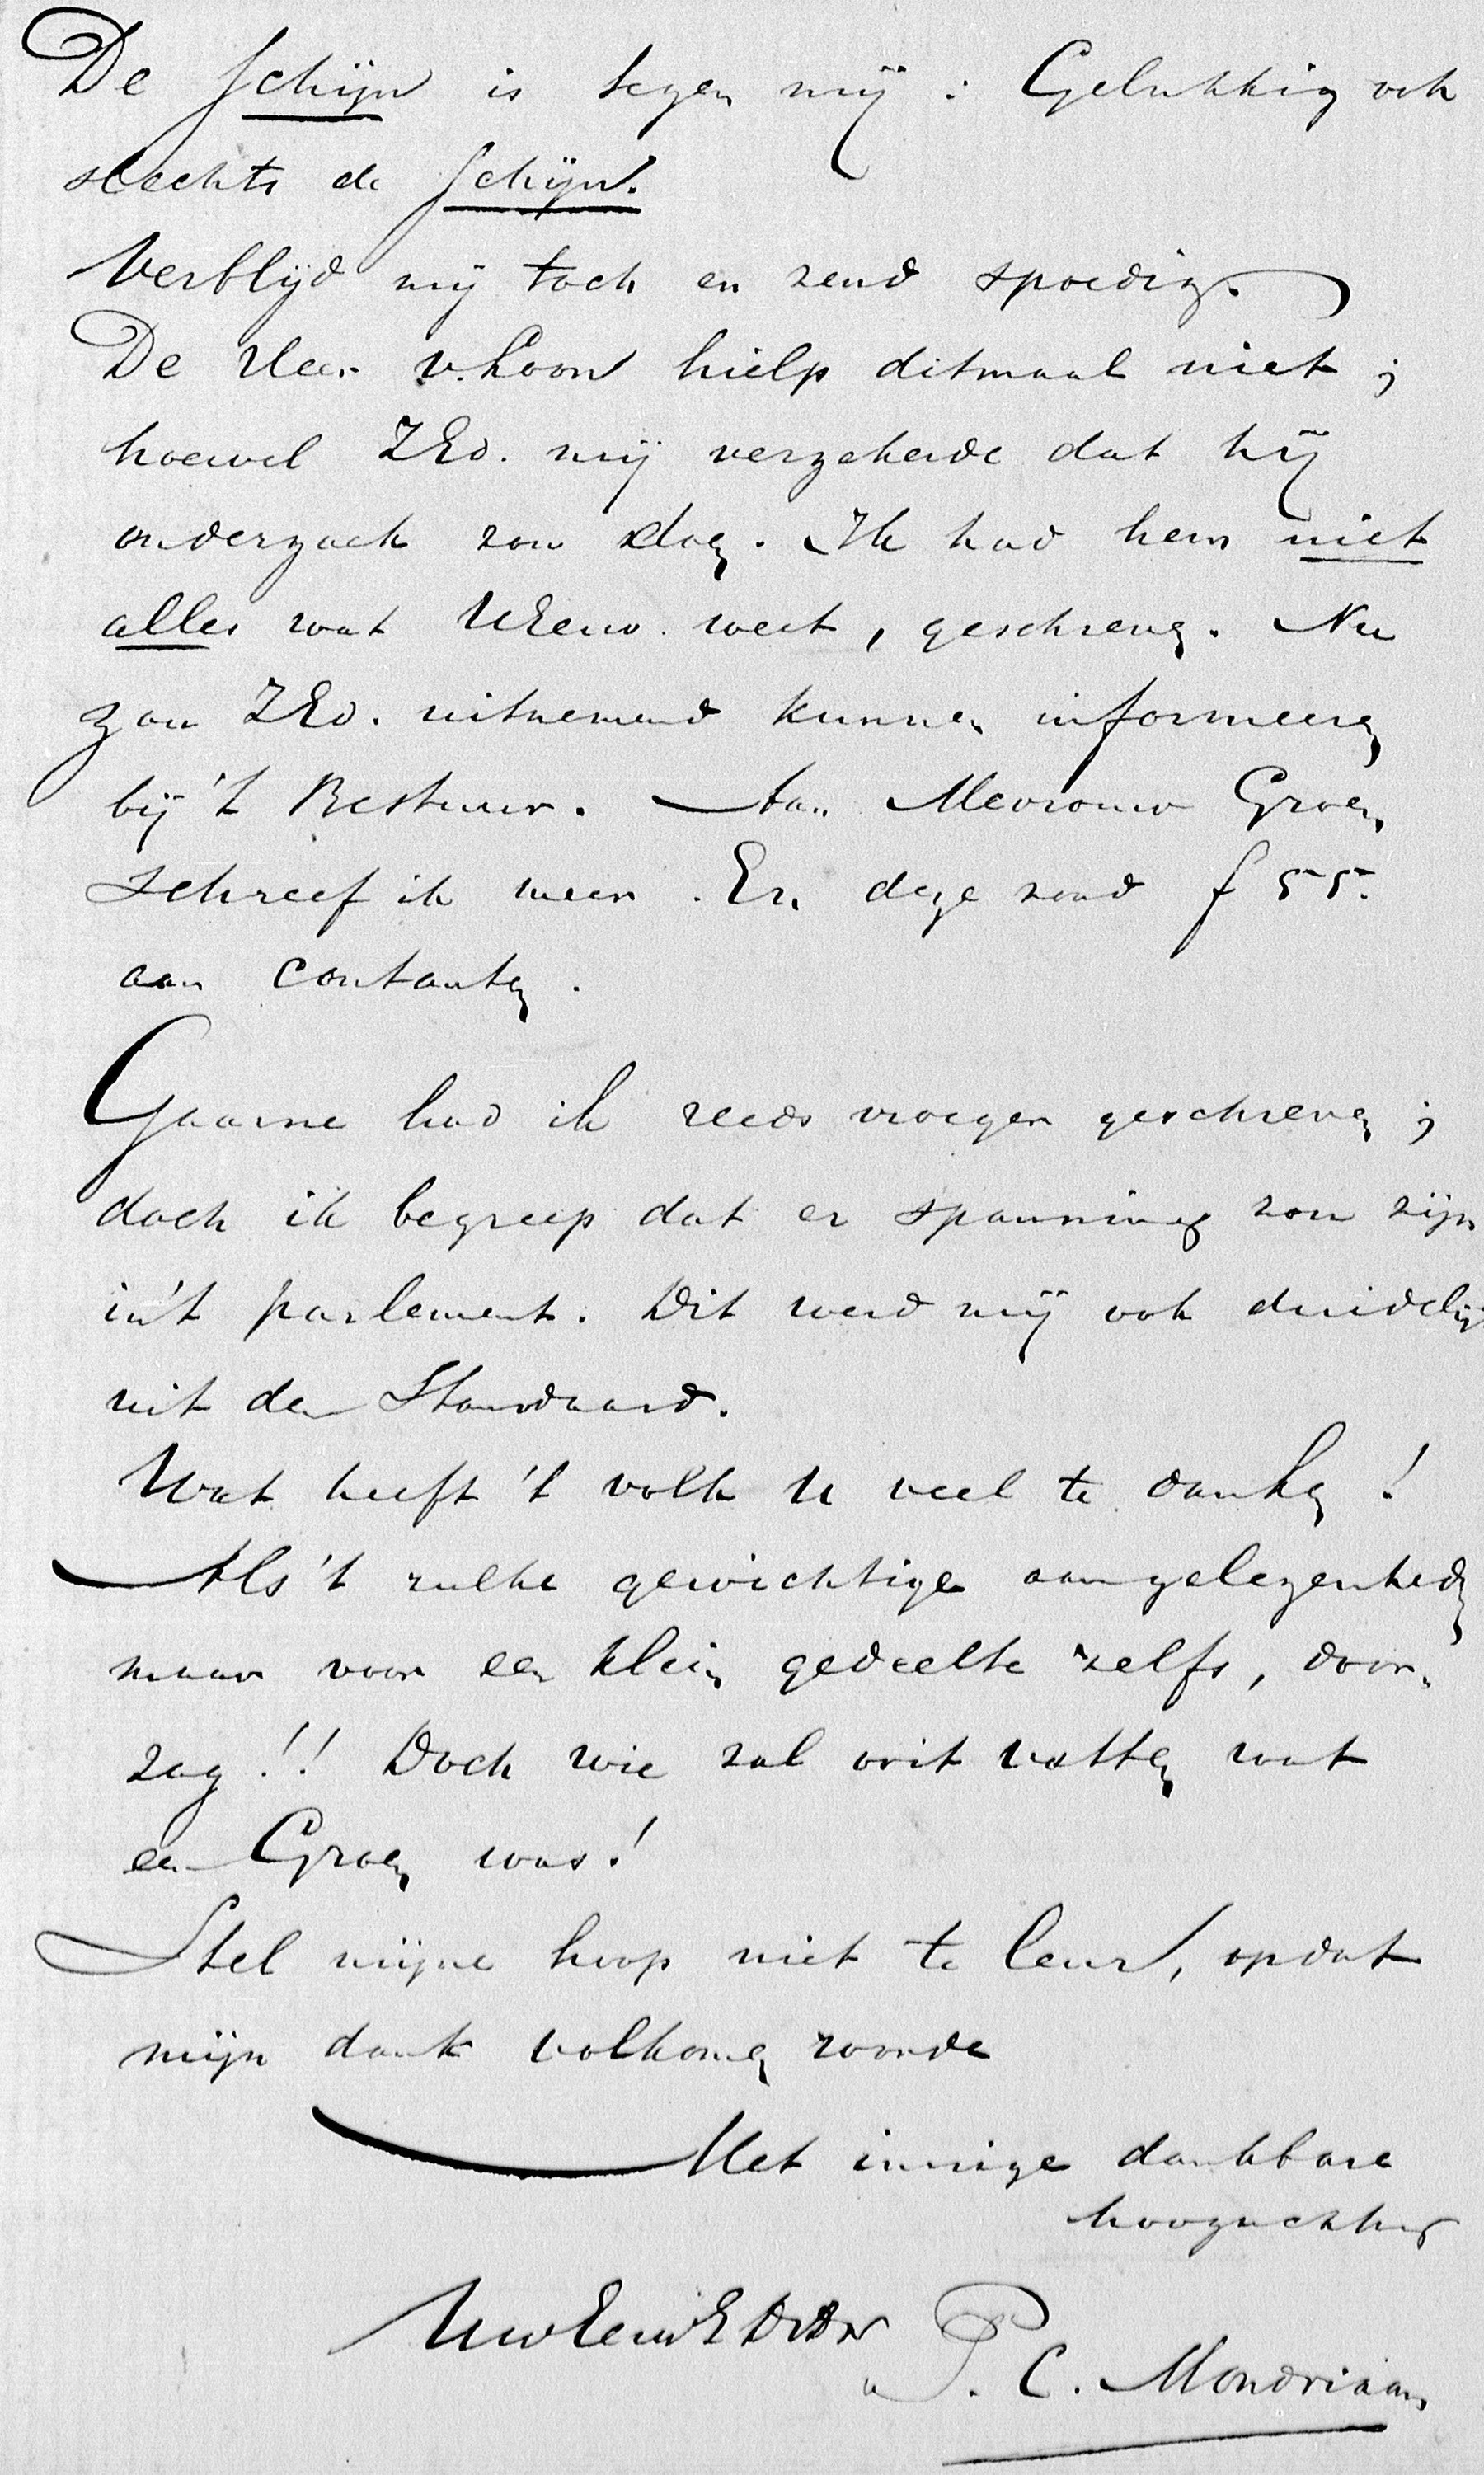 De Schijn is tegen mij : Gelukkig ook
slechts de Schijn.
Verblijd mij toch en zend spoedig.
De Heer v. Loon hielp ditmaal niet ;
hoewel ZEd. mij verzekerde dat hij
onderzoek zou doen. Ik had hem niet
alles wat UEerw. weet, geschreven. Nu
zou ZEd. uitnemend kunnen informeeren
bij 't Bestuur. Aan Mevrouw Groen
schreef ik meer. En deze zond f 55.
aan contanten.
Gaarne had ik reeds vroeger geschreven ;
doch ik begreep dat er spanning zou zijn
in 't parlement. Dit werd mij ook duidelijk
uit den Standaard.
Wat heeft 't volk U veel te danken !
Als 't zulke gewichtige aangelegenheden
maar voor een klein gedeelte zelfs, door-
zag !! Doch wie zal ooit vatten wat
een Groen was !
Stel mijne hoop niet te leur, opdat
mijn dank volkomen worde
Met innige dankbare
hoogachting
UwEerwEDDDr
P. C. Mondriaan